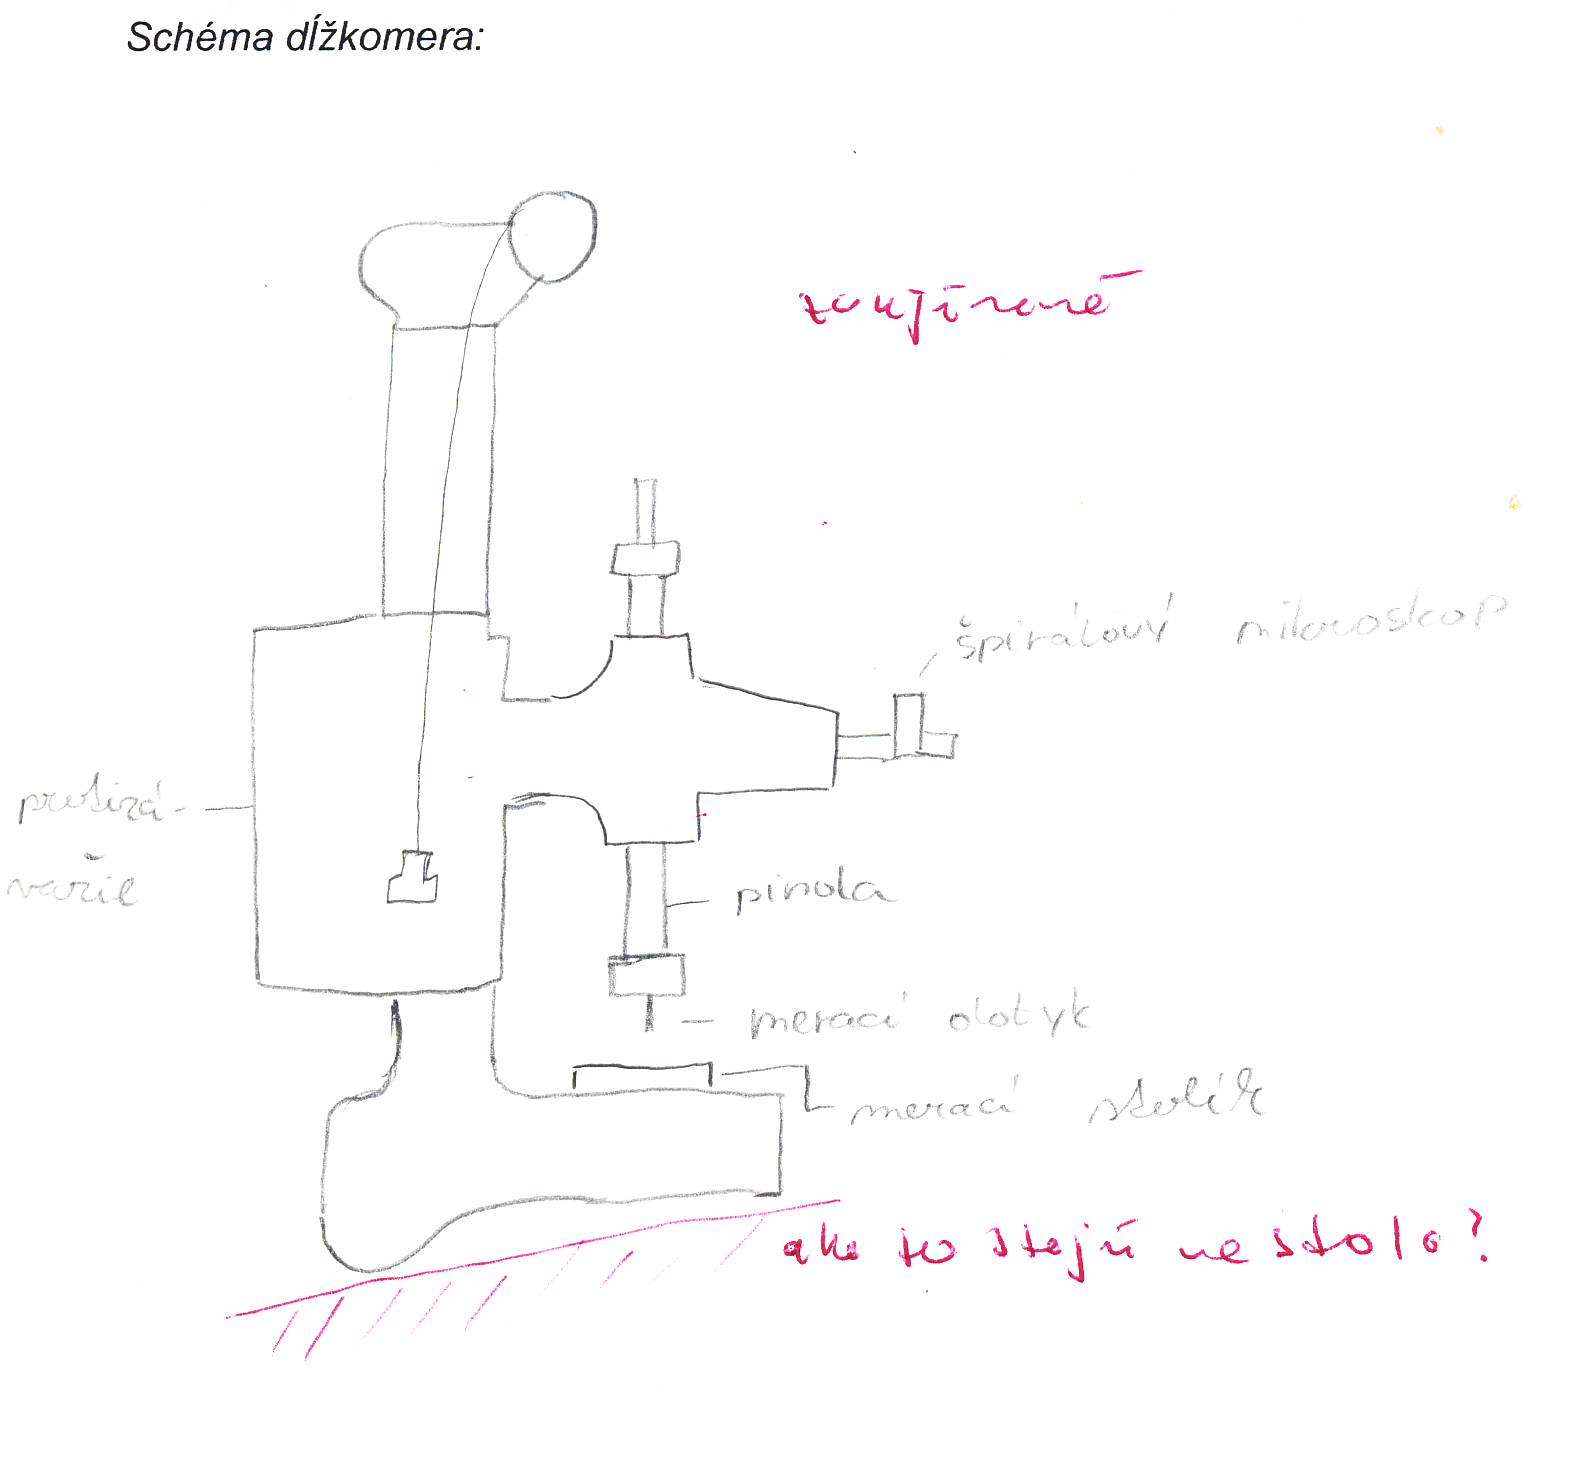 Schéma dĺžkomera:
špirálový mikroskop
protizá-
važie
pinola
merací dotyk
merací stolík
ako to stojí na stole?